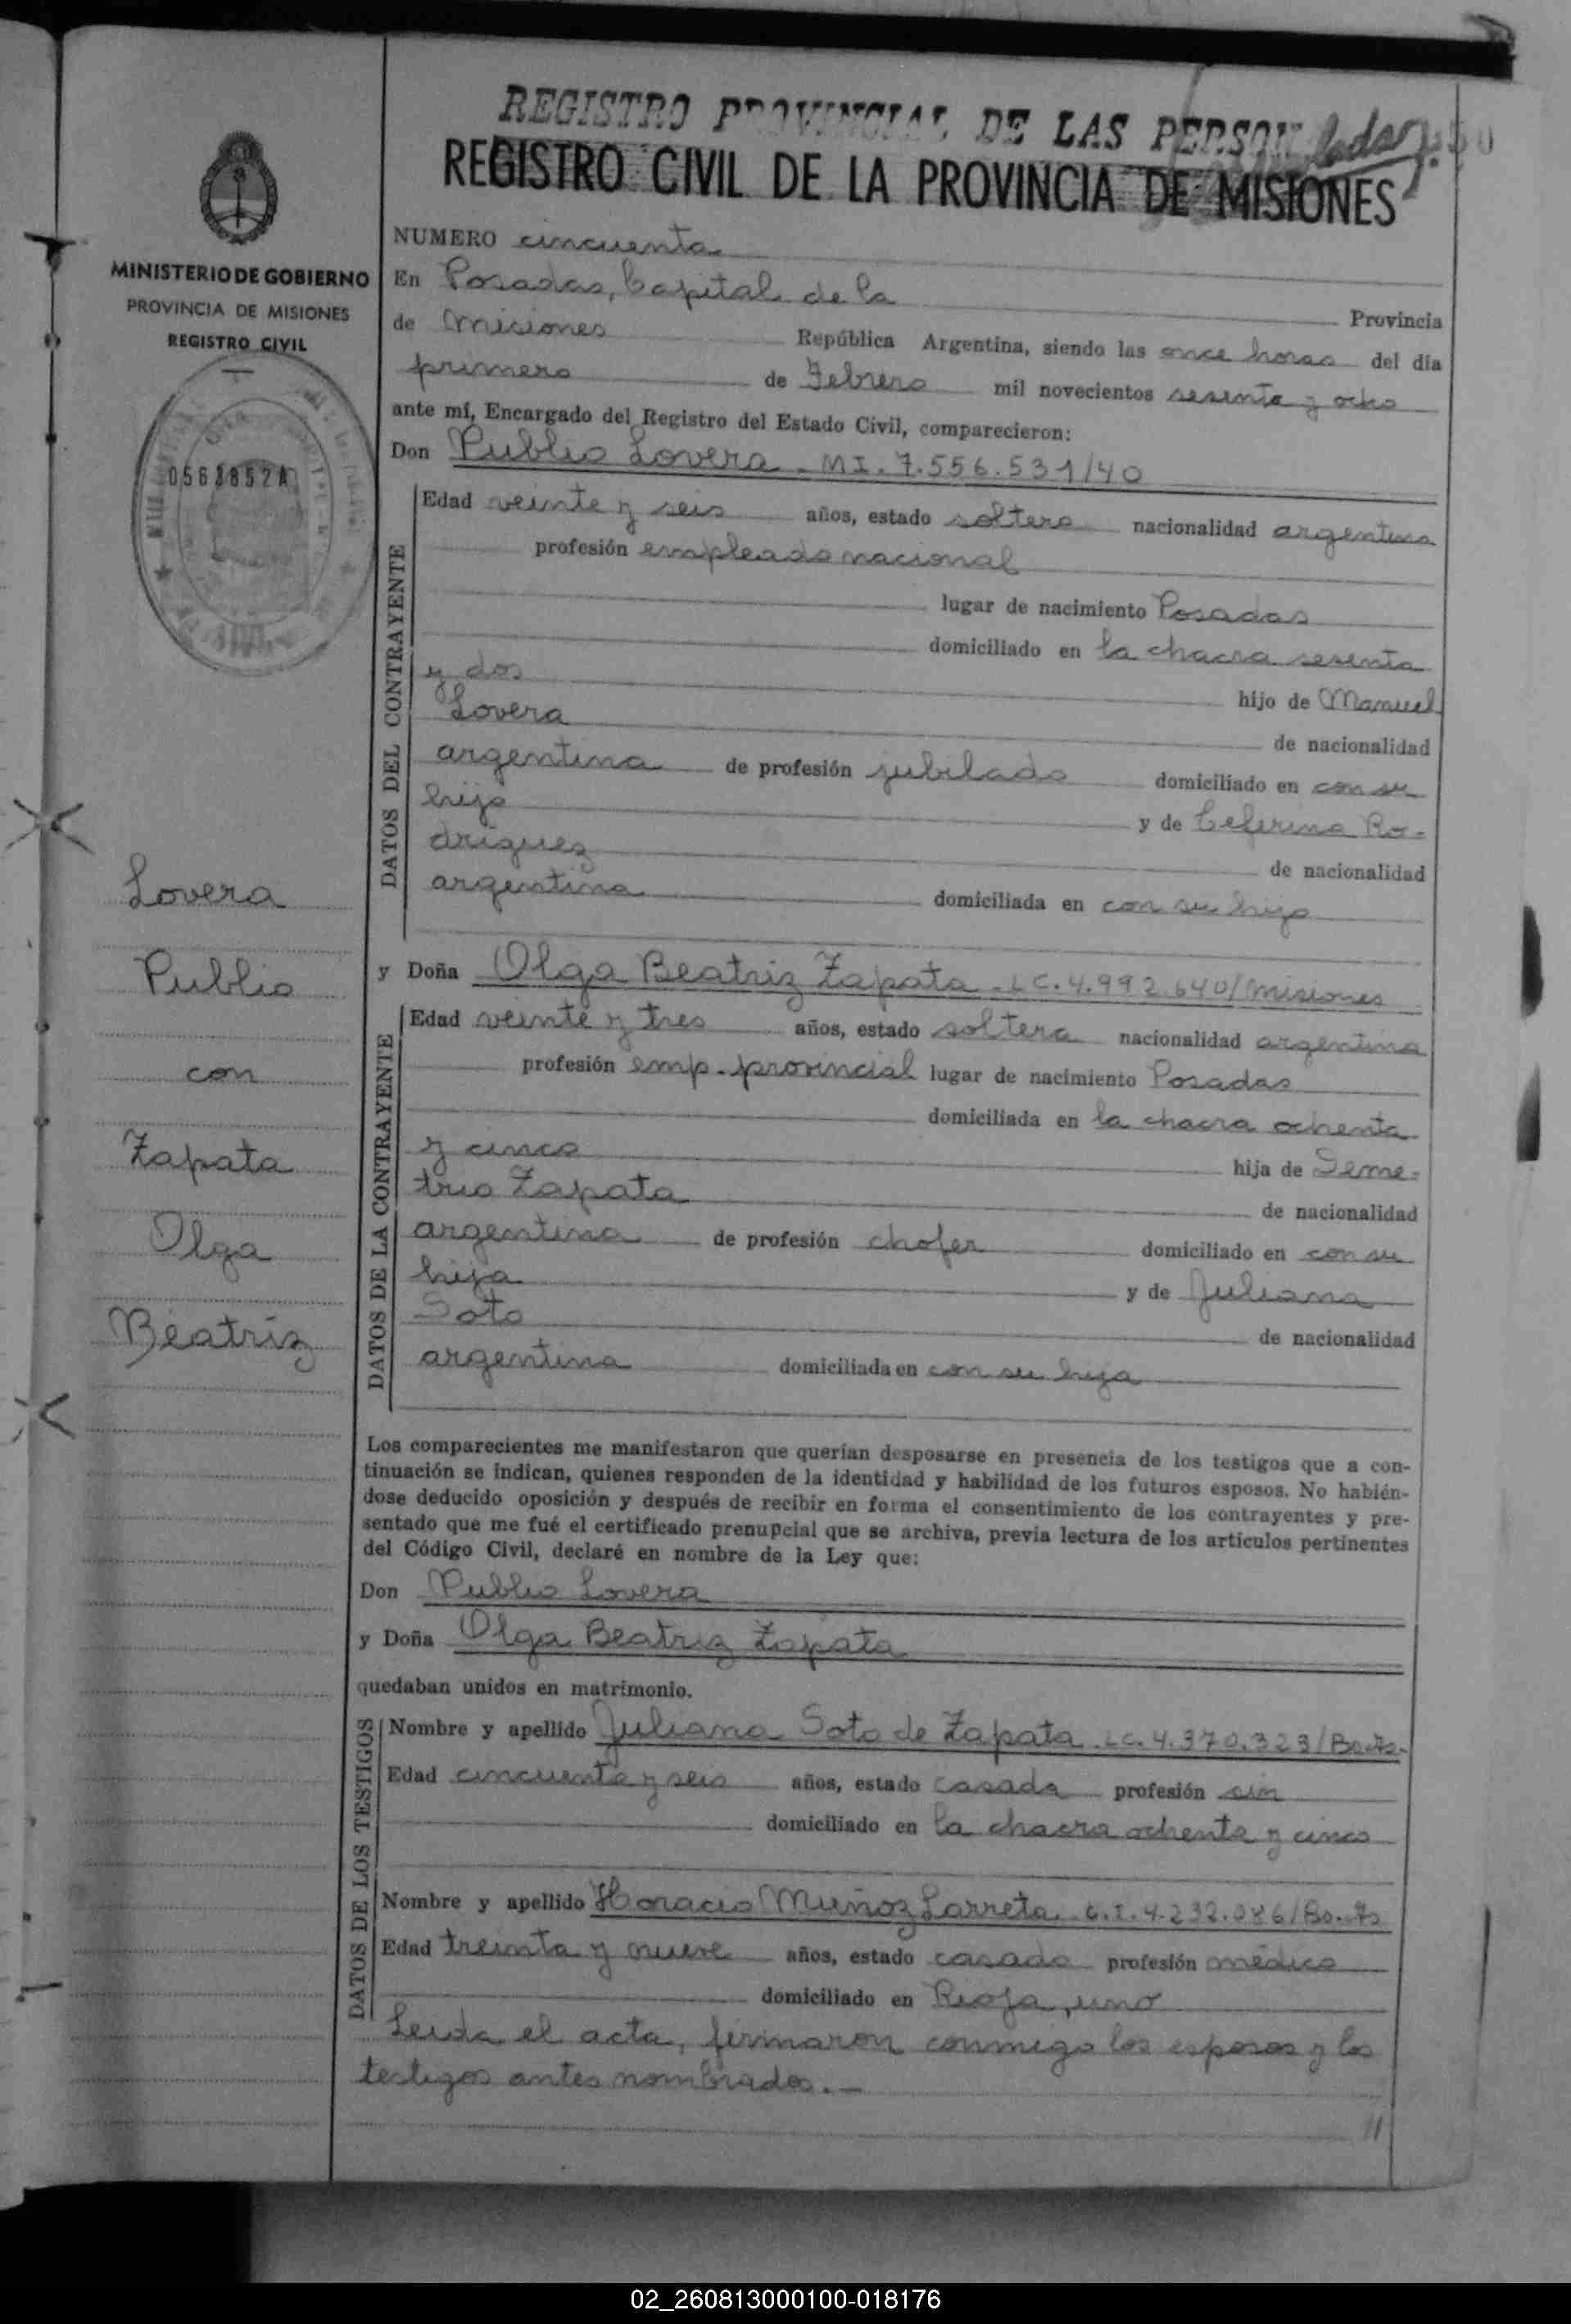 REGISTRO PROVINCIAL DE LAS PERSON
REGISTRO CIVIL DE LA PROVINCIA DE MISIONES
MINISTERIO DE GOBIERNO
PROVINCIA DE MISIONES
REGISTRO CIVIL
0563852A
Lovera
Publio
con
Zapata
Olga
Beatriz
NUMERO cincuenta
En Posadas, Capital de la Provincia
de Misiones República Argentina, siendo las once horas del día
primero de Febrero mil novecientos sesenta y ocho
ante mí, Encargado del Registro del Estado Civil, comparecieron:
Don Publio Lovera - MI. 7.556.531/40
DATOS DEL CONTRAYENTE
Edad veinte y seis años, estado soltero nacionalidad argentina
profesión empleado nacional
lugar de nacimiento Posadas
domiciliado en la chacra sesenta
y dos hijo de Manuel
Lovera de nacionalidad
argentina de profesión jubilado domiciliado en con su
hijo y de Ceferina Ro-
driguez de nacionalidad
argentina domiciliada en con su hijo
y Doña Olga Beatriz Zapata - LC. 4.992.640/Misiones
DATOS DE LA CONTRAYENTE
Edad veinte y tres años, estado soltera nacionalidad argentina
profesión emp. provincial lugar de nacimiento Posadas
domiciliada en la chacra ochenta
y cinco hija de Deme-
trio Zapata de nacionalidad
argentina de profesión chofer domiciliado en con su
hija y de Juliana
Soto de nacionalidad
argentina domiciliada en con su hija
Los comparecientes me manifestaron que querían desposarse en presencia de los testigos que a con-
tinuación se indican, quienes responden de la identidad y habilidad de los futuros esposos. No habién-
dose deducido oposición y después de recibir en forma el consentimiento de los contrayentes y pre-
sentado que me fué el certificado prenupcial que se archiva, previa lectura de los artículos pertinentes
del Código Civil, declaré en nombre de la Ley que:
Don Publio Lovera
y Doña Olga Beatriz Zapata
quedaban unidos en matrimonio.
DATOS DE LOS TESTIGOS
Nombre y apellido Juliana Soto de Zapata - LC. 4.370.323/Bs.As.
Edad cincuenta y seis años, estado casada profesión sin
domiciliado en la chacra ochenta y cinco
Nombre y apellido Horacio Muñoz Larreta - C.I. 4.232.086/Bs.As
Edad treinta y nueve años, estado casado profesión médico
domiciliado en Rioja, uno
Leida el acta, firmaron conmigo los esposos y los
testigos antes nombrados. -
//
02_260813000100-018176